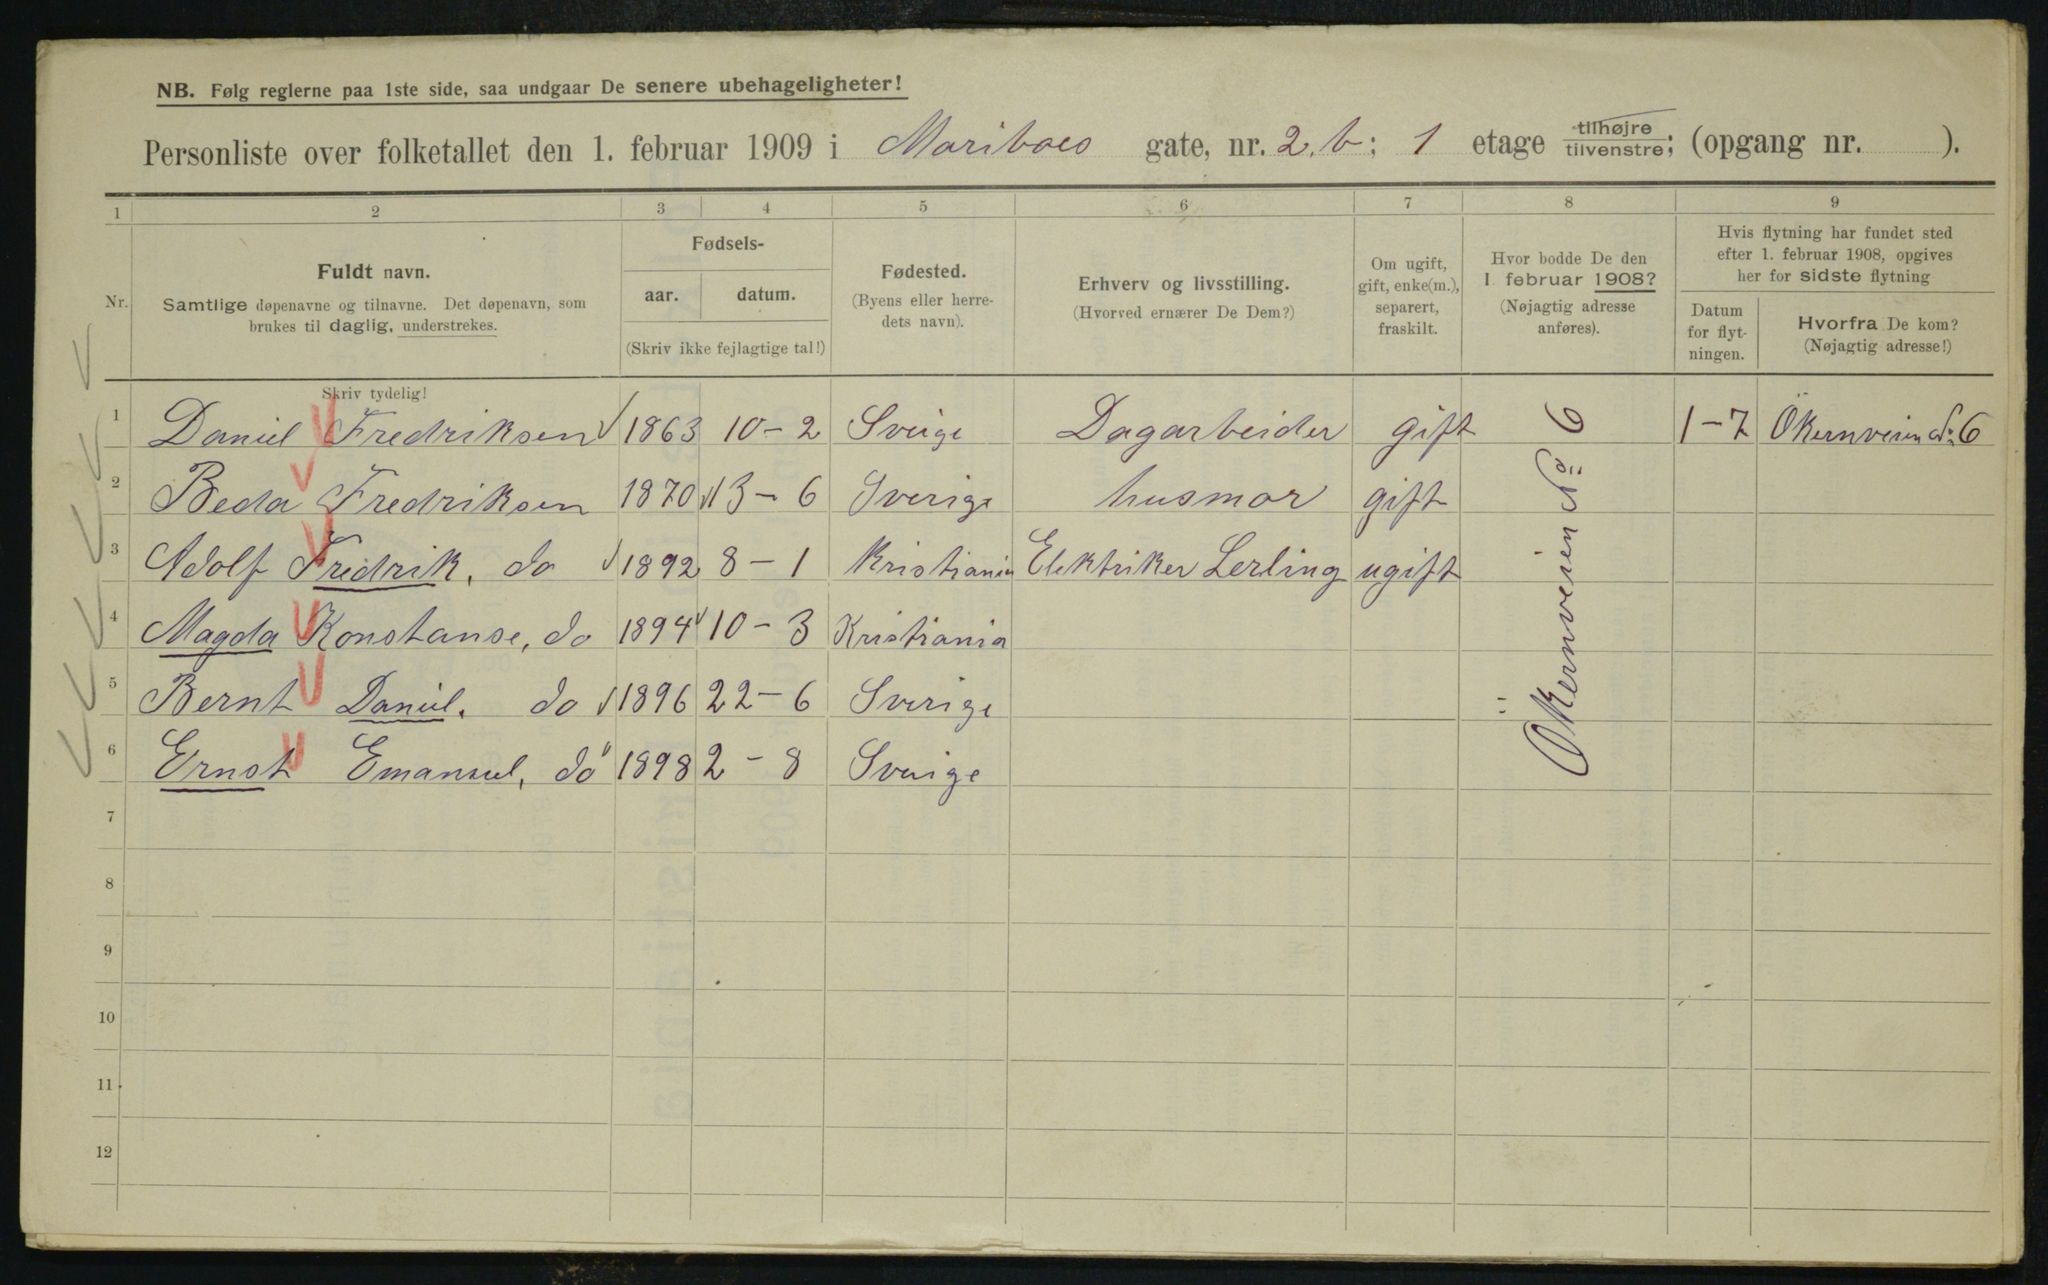 NB. Følg reglerne paa 1ste side, saa undgaar De senere ubehageligheter!
Personliste over folketallet den 1. februar 1909 i Mariboes gate, nr. 2.b; 1 etage tilhøjre tilvenstre; (opgang nr. ).
1 2 3 4 5 6 7 8 9
Nr.
Fuldt navn.
Samtlige døpenavne og tilnavne. Det døpenavn, som
brukes til daglig, understrekes.
Fødsels-
aar. datum.
(Skriv ikke fejlagtige tal!)
Fødested.
(Byens eller herre-
dets navn).
Erhverv og livsstilling.
(Hvorved ernærer De Dem?)
Om ugift,
gift, enke(m.),
separert,
fraskilt.
Hvor bodde De den
1. februar 1908?
(Nøjagtig adresse
anføres).
Hvis flytning har fundet sted
efter 1. februar 1908, opgives
her for sidste flytning
Datum
for flyt-
ningen.
Hvorfra De kom?
(Nøjagtig adresse!)
Skriv tydelig!
1 Daniel Fredriksen 1863 10-2 Sverige Dagarbeider gift 1-7 Ökernveien No 6
2 Beda Fredriksen 1870 13-6 Sverige husmor gift
3 Adolf Fredrik, do 1892 8-1 Kristiania Elektriker Lerling ugift
4 Magda Konstanse, do 1894 10-3 Kristiania
5 Bernt Daniel. do 1896 22-6 Sverige
6 Ernst Emanuel, do 1898 2-8 Sverige
Ökernveien No 6
7
8
9
10
11
12